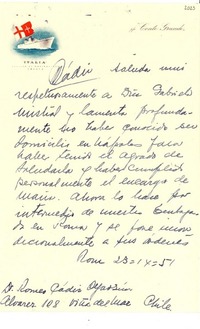 "Conte Grande"
ITALIA
Cádiz saluda muy
respetuosamente a Gabriela
Mistral y lamenta profunda-
mente no haber conocido su
domicilio en Nápoles para
haber tenido el agrado de
saludarla y haber cumplido
personalmente el encargo de
Ahora lo hace por
intermedio de nuestra Embaja-
da en Roma y se pone incon-
dicionalmente a sus ordenes
Roma 23-IX-51
Dr. Cádiz
Alvarez 108 Viña del Mar Chile